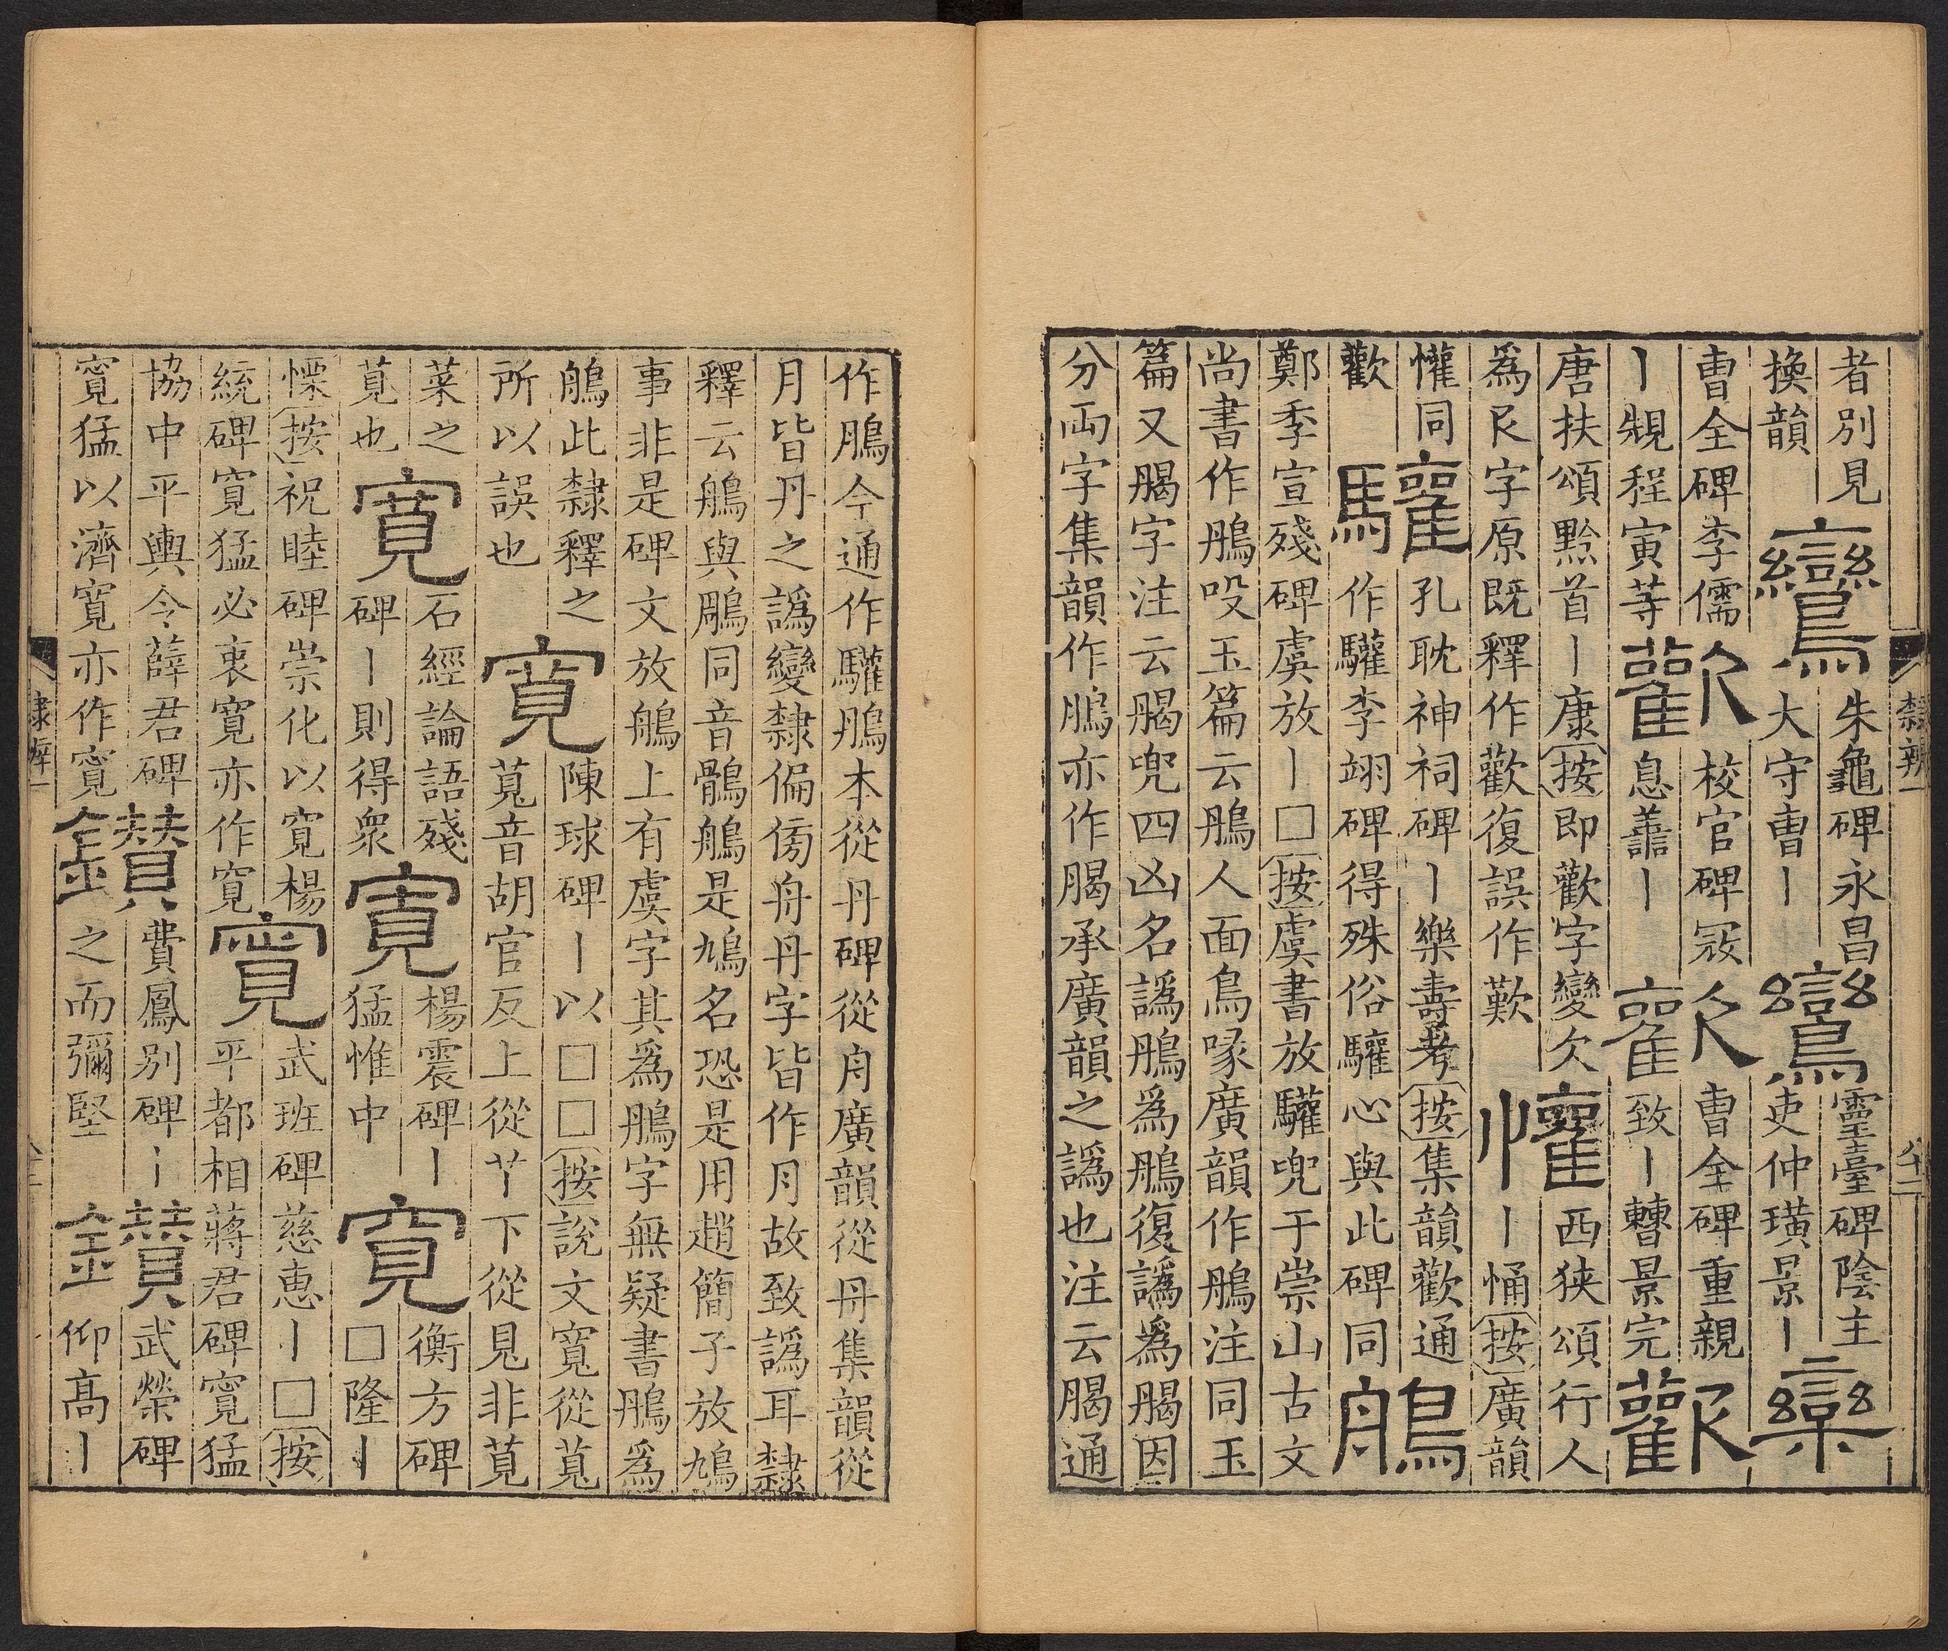 者別見鸞朱龜碑永昌鸞靈臺碑陰主欒
換韻大守曹丨吏仲璜景丨
曹全碑李儒歡校官碑冦歡曹全碑重親歡
丨規程寅等息譱丨致丨景完
唐扶頌黔首丨康按即歡字變欠懽西狹頌行人
爲字原既釋作歡復誤作歎丨悀按廣韻
懽同驩孔耽神祠碑丨樂壽考按集韻歡通鵃
歡作驩李翊碑得殊俗驩心與此碑同
鄭季宣殘碑虞放丨□按虞書放驩兜于崇山古文
尚書作鴅吺玉篇云鴅人面鳥喙廣韻作鵃注同玉
篇又字注云兜四凶名譌鴅爲鵃復譌爲因
分両字集韻作鴅亦作承廣韻之譌也注云通
隸辨一
作鴅今通作驩鴅本從丹碑從舟廣韻從舟集韻從
月皆丹之譌變隸偏傍舟丹字皆作月故致譌耳隸
釋云鵃與鵰同音鶻鵃是鳩名恐是用趙簡子放鳩
事非是碑文放鵃上有虞字其爲鴅字無疑書鴅爲
鵃此隸釋之寬陳球碑丨以□□按說文寬從萈
所以誤也萈音胡官反上從丫下從見非莧
菜之寬石經論語殘寬楊震碑丨寬衡方碑
莧也碑丨則得衆猛惟中□隆丨
慄按祝睦碑崇化以寬楊寬武班碑慈惠丨□按
統碑寬猛必衷寬亦作寬平都相蔣君碑寬猛
協中平輿令薛君碑鑽費鳳別碑丨鑽武榮碑
寬猛以濟寬亦作寬之而彌堅仰高丨